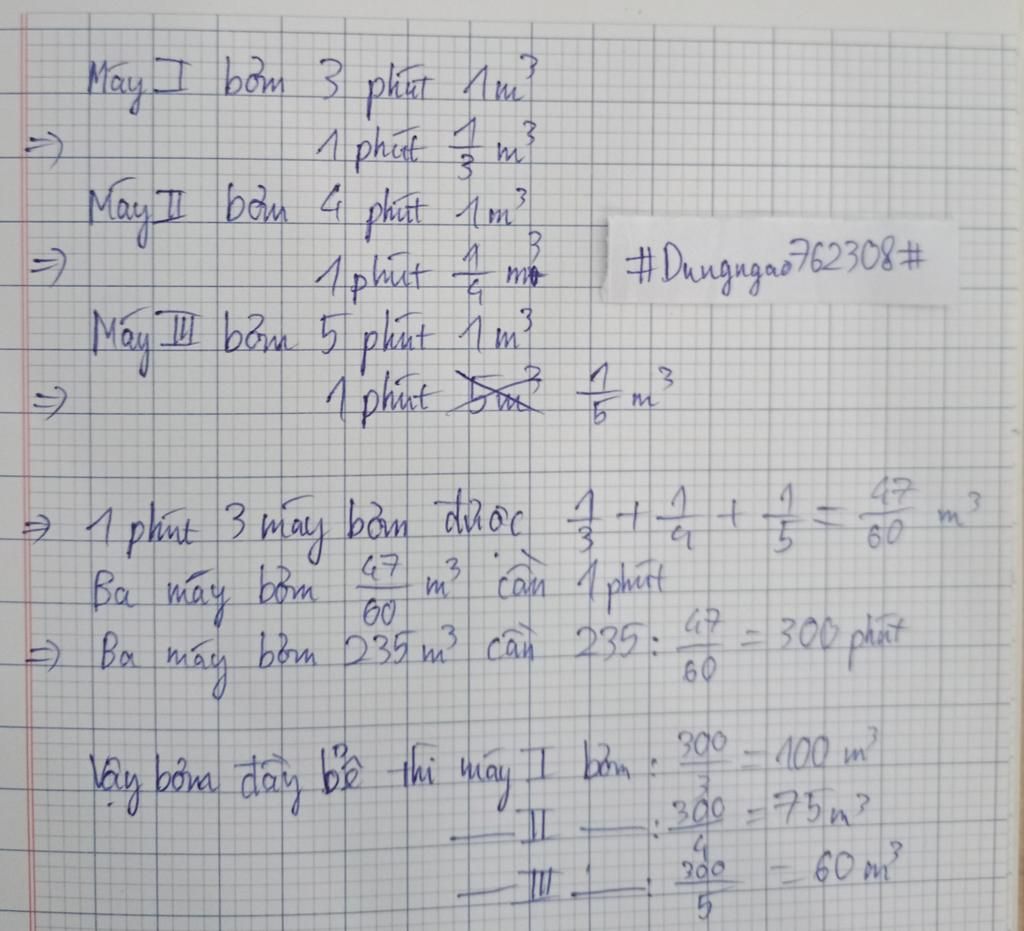 Máy I bơm 3 phút 1m³
=> 1 phút 1/3 m³
Máy II bơm 4 phút 1m³
=> 1 phút 1/4 m³
#Dungngao762308#
Máy III bơm 5 phút 1m³
=> 1 phút 5m³ 1/5 m³
=> 1 phút 3 máy bơm được 1/3 + 1/4 + 1/5 = 47/60 m³
Ba máy bơm 47/60 m³ cần 1 phút
=> Ba máy bơm 235m³ cần 235 : 47/60 = 300 phút
Vậy bơm đầy bể thì máy I bơm : 300/3 = 100 m³
— II — : 300/4 = 75m³
— III — : 300/5 = 60 m³